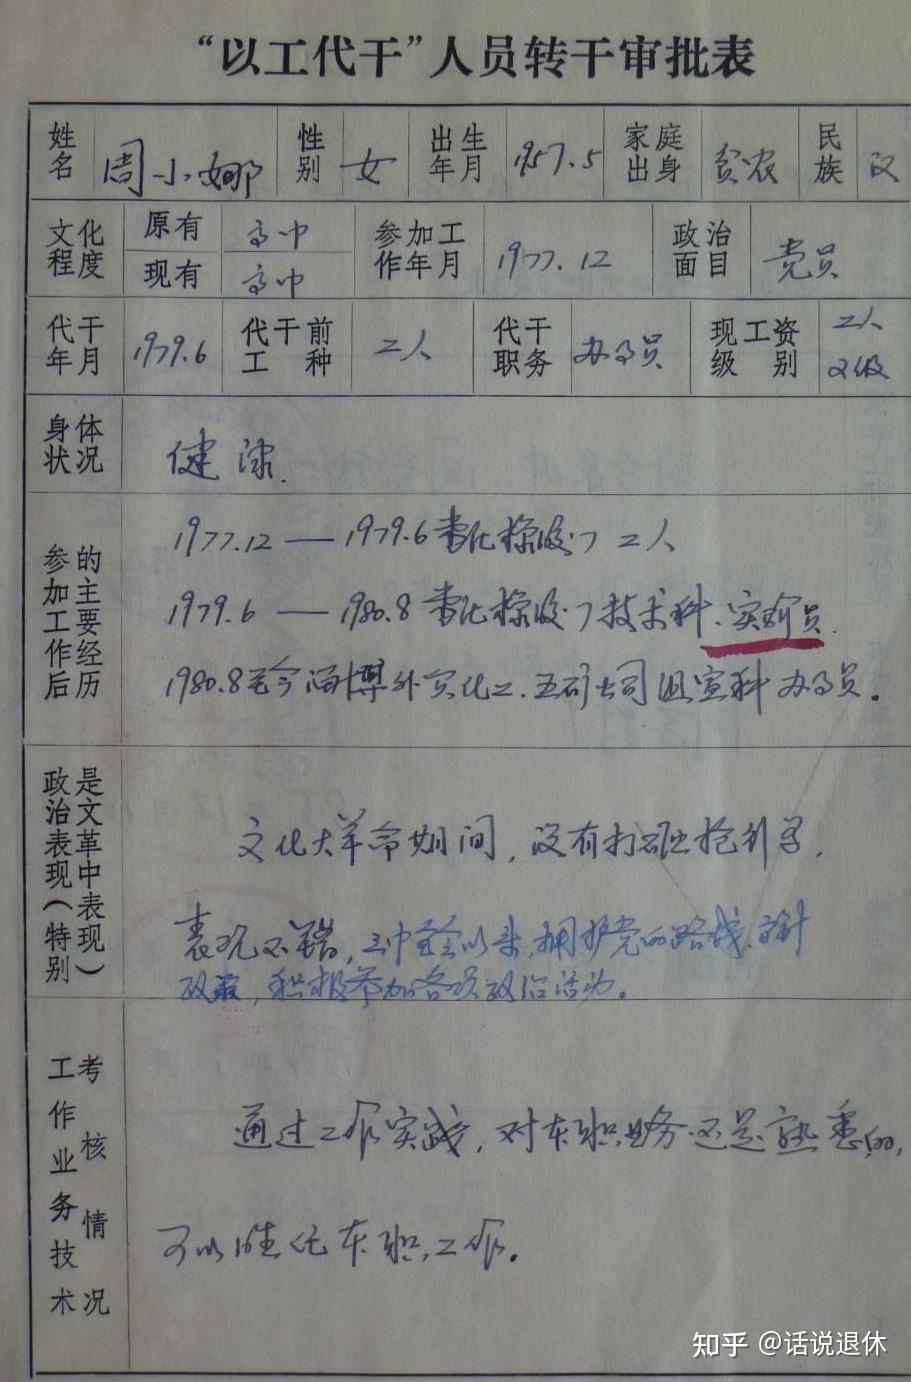 “以工代干”人员转干审批表
姓名 周小娜 性别 女 出生年月 1957.5 家庭出身 贫农 民族 汉
文化程度 原有 高中 参加工作年月 1977.12 政治面目 党员
现有 高中
代干年月 1979.6 代干前工种 工人 代干职务 办事员 现工资级别 工人
2级
身体状况 健康.
参加工作后的主要经历
1977.12 — 1979.6 工人
1979.6 — 1980.8 技术科、实验员.
1980.8至今 淄博外贸化工、五矿公司 科 办事员。
政治表现（特别是文革中表现）
文化大革命期间，没有打砸抢行为，
表现不错，三中全会以来，拥护党的路线、方针
政策，积极参加各项政治活动。
工作业务技术考核情况
通过工作实践，对本职业务还是熟悉的，
可以胜任本职工作。
知乎 @话说退休